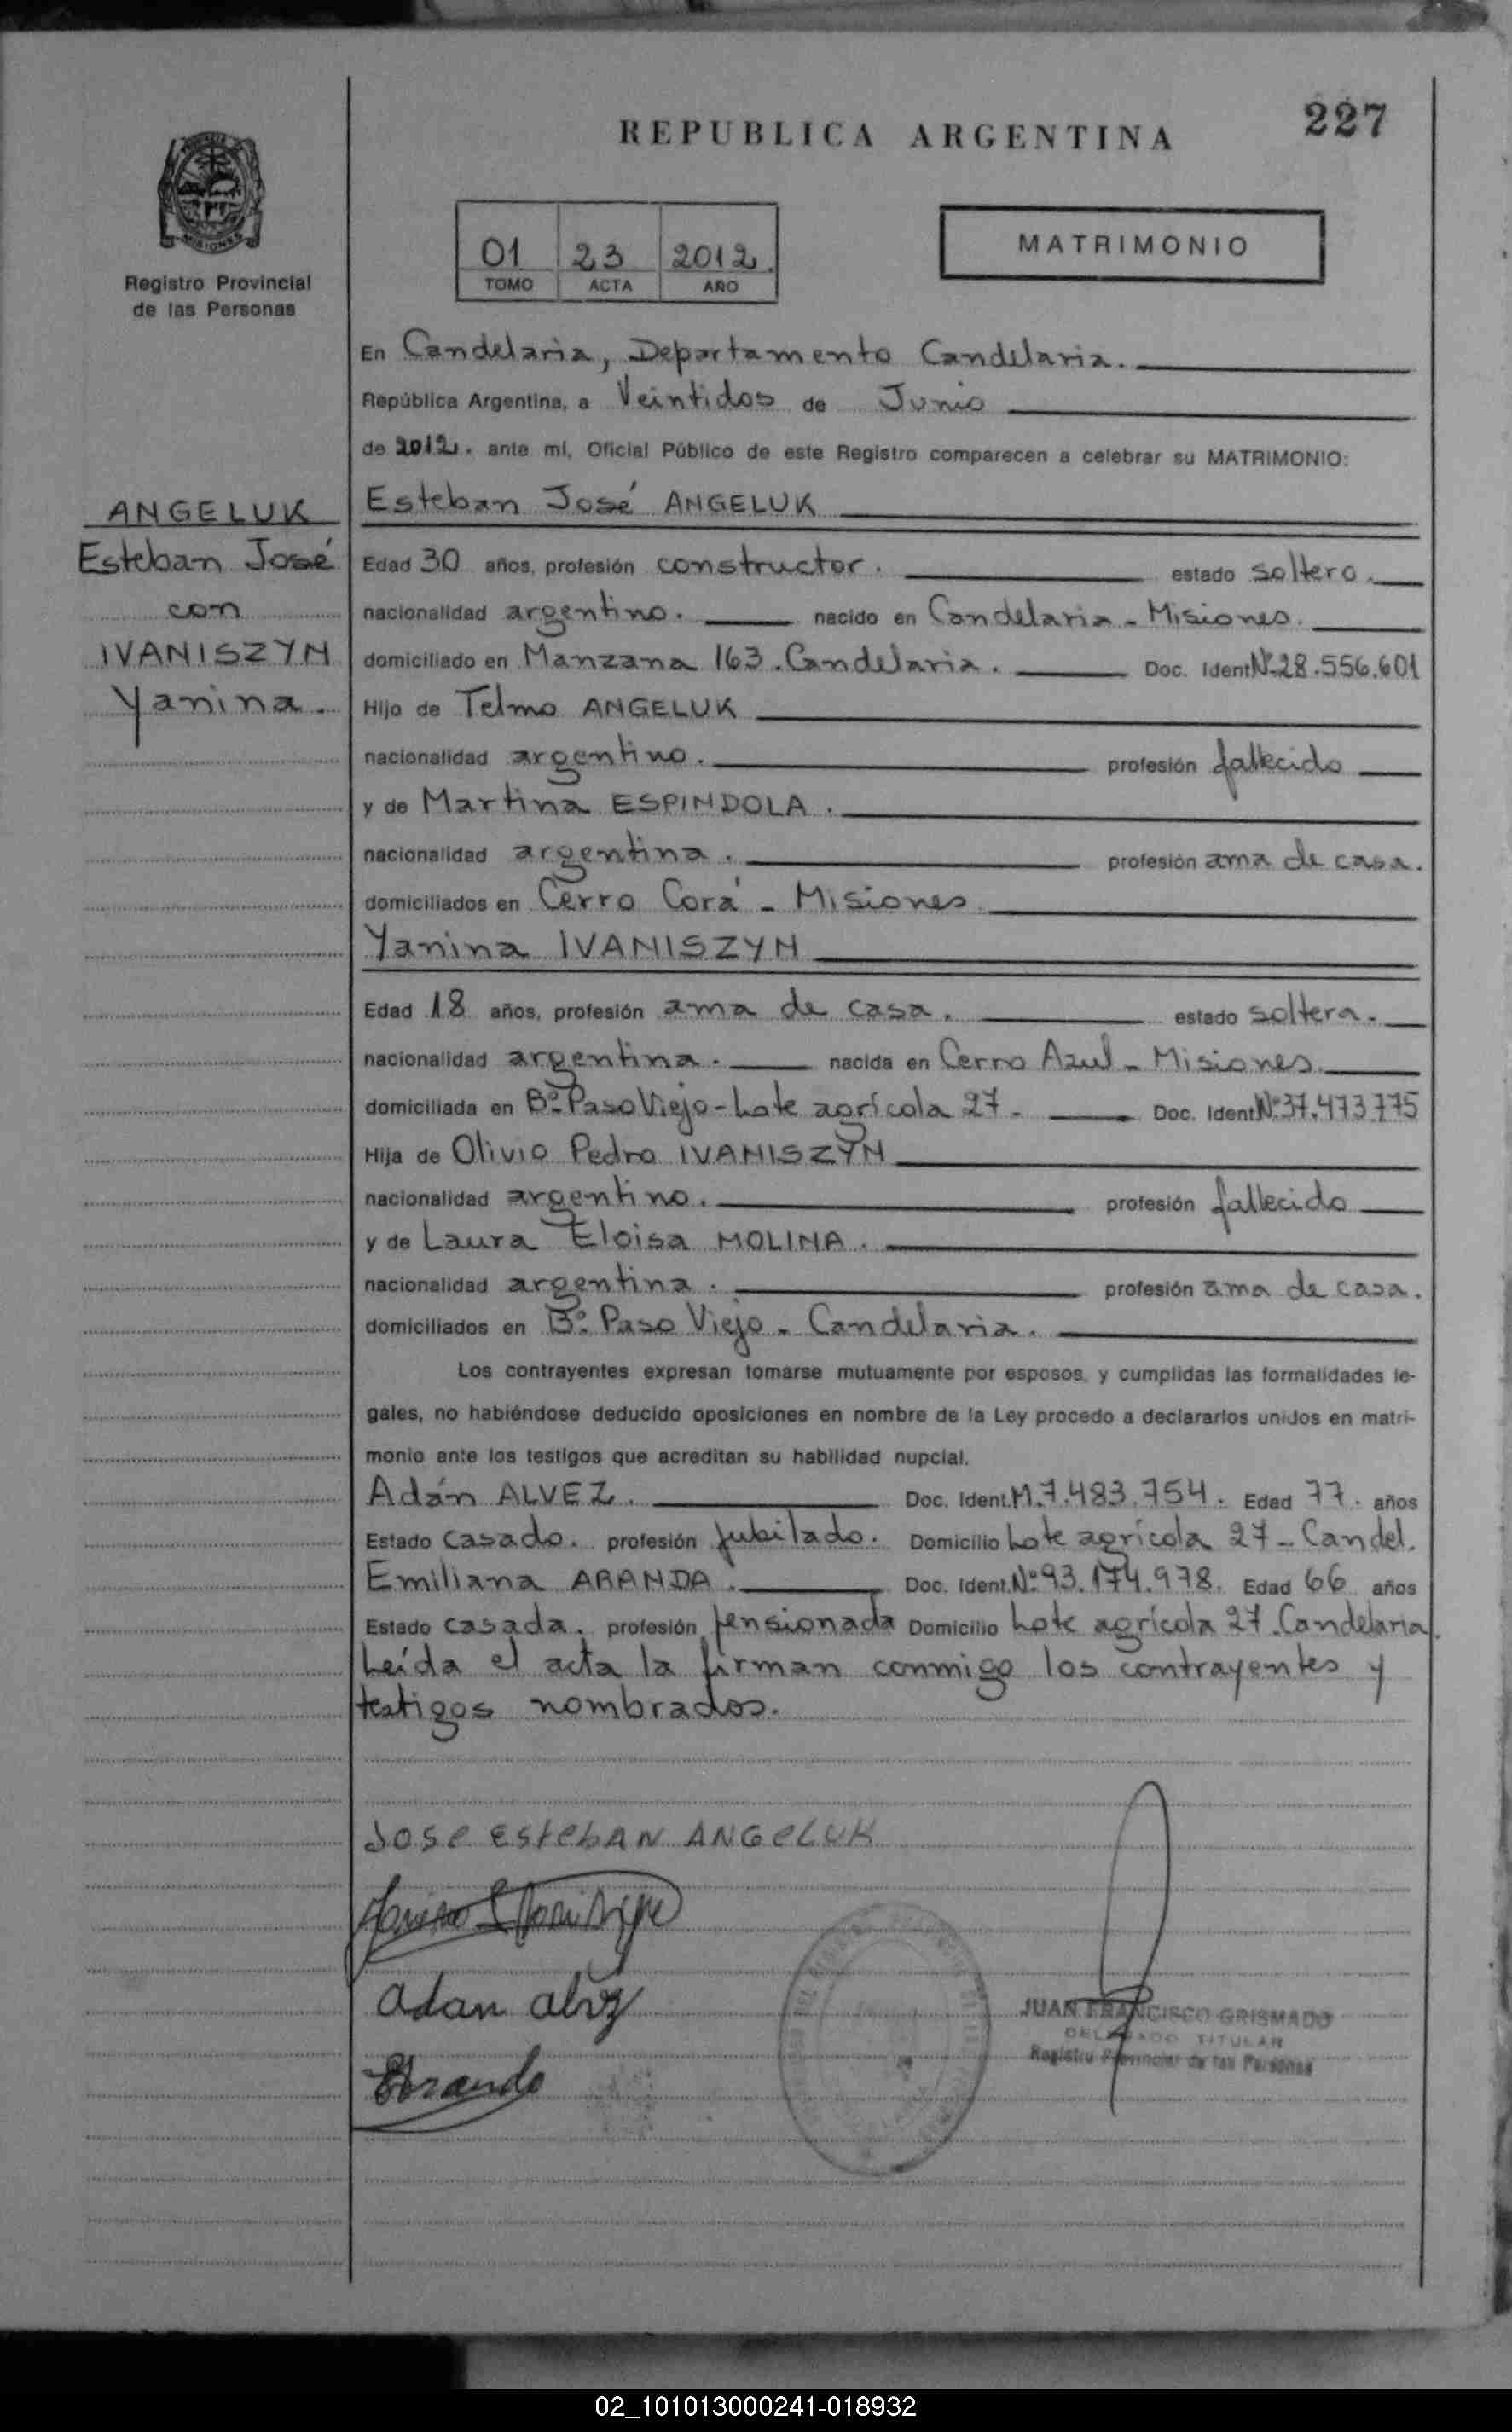 227
REPUBLICA ARGENTINA
MISIONES
Registro Provincial
de las Personas
01 23 2012.
TOMO ACTA AÑO
MATRIMONIO
En Candelaria, Departamento Candelaria.
República Argentina, a Veintidos de Junio
de 2012. ante mí, Oficial Público de este Registro comparecen a celebrar su MATRIMONIO:
ANGELUK
Esteban José
con
IVANISZYN
Yanina.
Esteban José ANGELUK
Edad 30 años, profesión constructor. estado soltero.
nacionalidad argentino. nacido en Candelaria - Misiones.
domiciliado en Manzana 163. Candelaria. Doc. Ident Nº 28.556.601
Hijo de Telmo ANGELUK
nacionalidad argentino. profesión fallecido
y de Martina ESPINDOLA.
nacionalidad argentina. profesión ama de casa.
domiciliados en Cerro Corá - Misiones
Yanina IVANISZYN
Edad 18 años, profesión ama de casa. estado soltera.
nacionalidad argentina. nacida en Cerro Azul - Misiones.
domiciliada en Bº Paso Viejo - Lote agrícola 27. Doc. Ident Nº 37.473.775
Hija de Olivio Pedro IVANISZYN
nacionalidad argentino. profesión fallecido
y de Laura Eloisa MOLINA.
nacionalidad argentina. profesión ama de casa.
domiciliados en Bº Paso Viejo - Candelaria.
Los contrayentes expresan tomarse mutuamente por esposos, y cumplidas las formalidades le-
gales, no habiéndose deducido oposiciones en nombre de la Ley procedo a declararlos unidos en matri-
monio ante los testigos que acreditan su habilidad nupcial.
Adán ALVEZ. Doc. Ident. M.7.483.754. Edad 77. años
Estado casado. profesión jubilado. Domicilio Lote agrícola 27 - Candel.
Emiliana ARANDA. Doc. Ident. Nº 93.174.978. Edad 66 años
Estado casada. profesión pensionada Domicilio Lote agrícola 27. Candelaria.
Leída el acta la firman conmigo los contrayentes y
testigos nombrados.
Jose Esteban ANGELUK
adan alvez
EAranda
JUAN FRANCISCO GRISMADO
DELEGADO TITULAR
Registro Provincial de las Personas
02_101013000241-018932